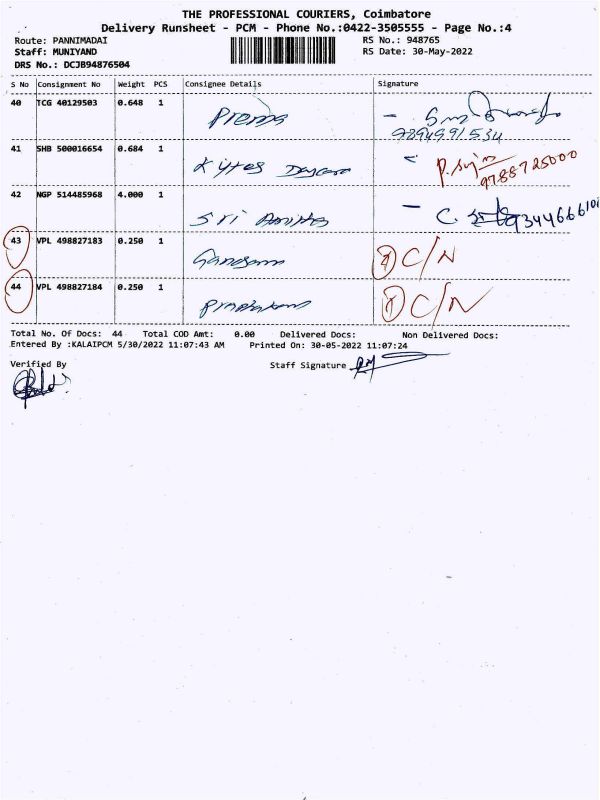 THE PROFESSIONAL COURIERS, Coimbatore
Delivery Runsheet - PCM - Phone No.:0422-3505555 - Page No.:4
Route: PANNIMADAI RS No.: 948765
Staff: MUNIYAND RS Date: 30-May-2022
DRS No.: DCJB94876504
S No Consignment No Weight PCS Consignee Details Signature
40 TCG 40129503 0.648 1 Prema
9894991534
41 SHB 500016654 0.684 1 9788725000
42 NGP 514485968 4.000 1 Sri C. 9344666101
43 VPL 498827183 0.250 1 C/N
44 VPL 498827184 0.250 1 C/N
Total No. Of Docs: 44 Total COD Amt: 0.00 Delivered Docs: Non Delivered Docs:
Entered By :KALAIPCM 5/30/2022 11:07:43 AM Printed On: 30-05-2022 11:07:24
Verified By Staff Signature